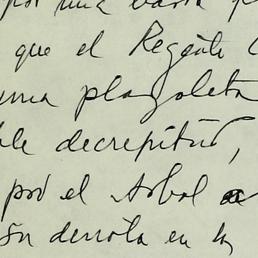 por una vasta
que el Regente
una plazoleta
decrepitud,
por el Arbol
su derrota en la